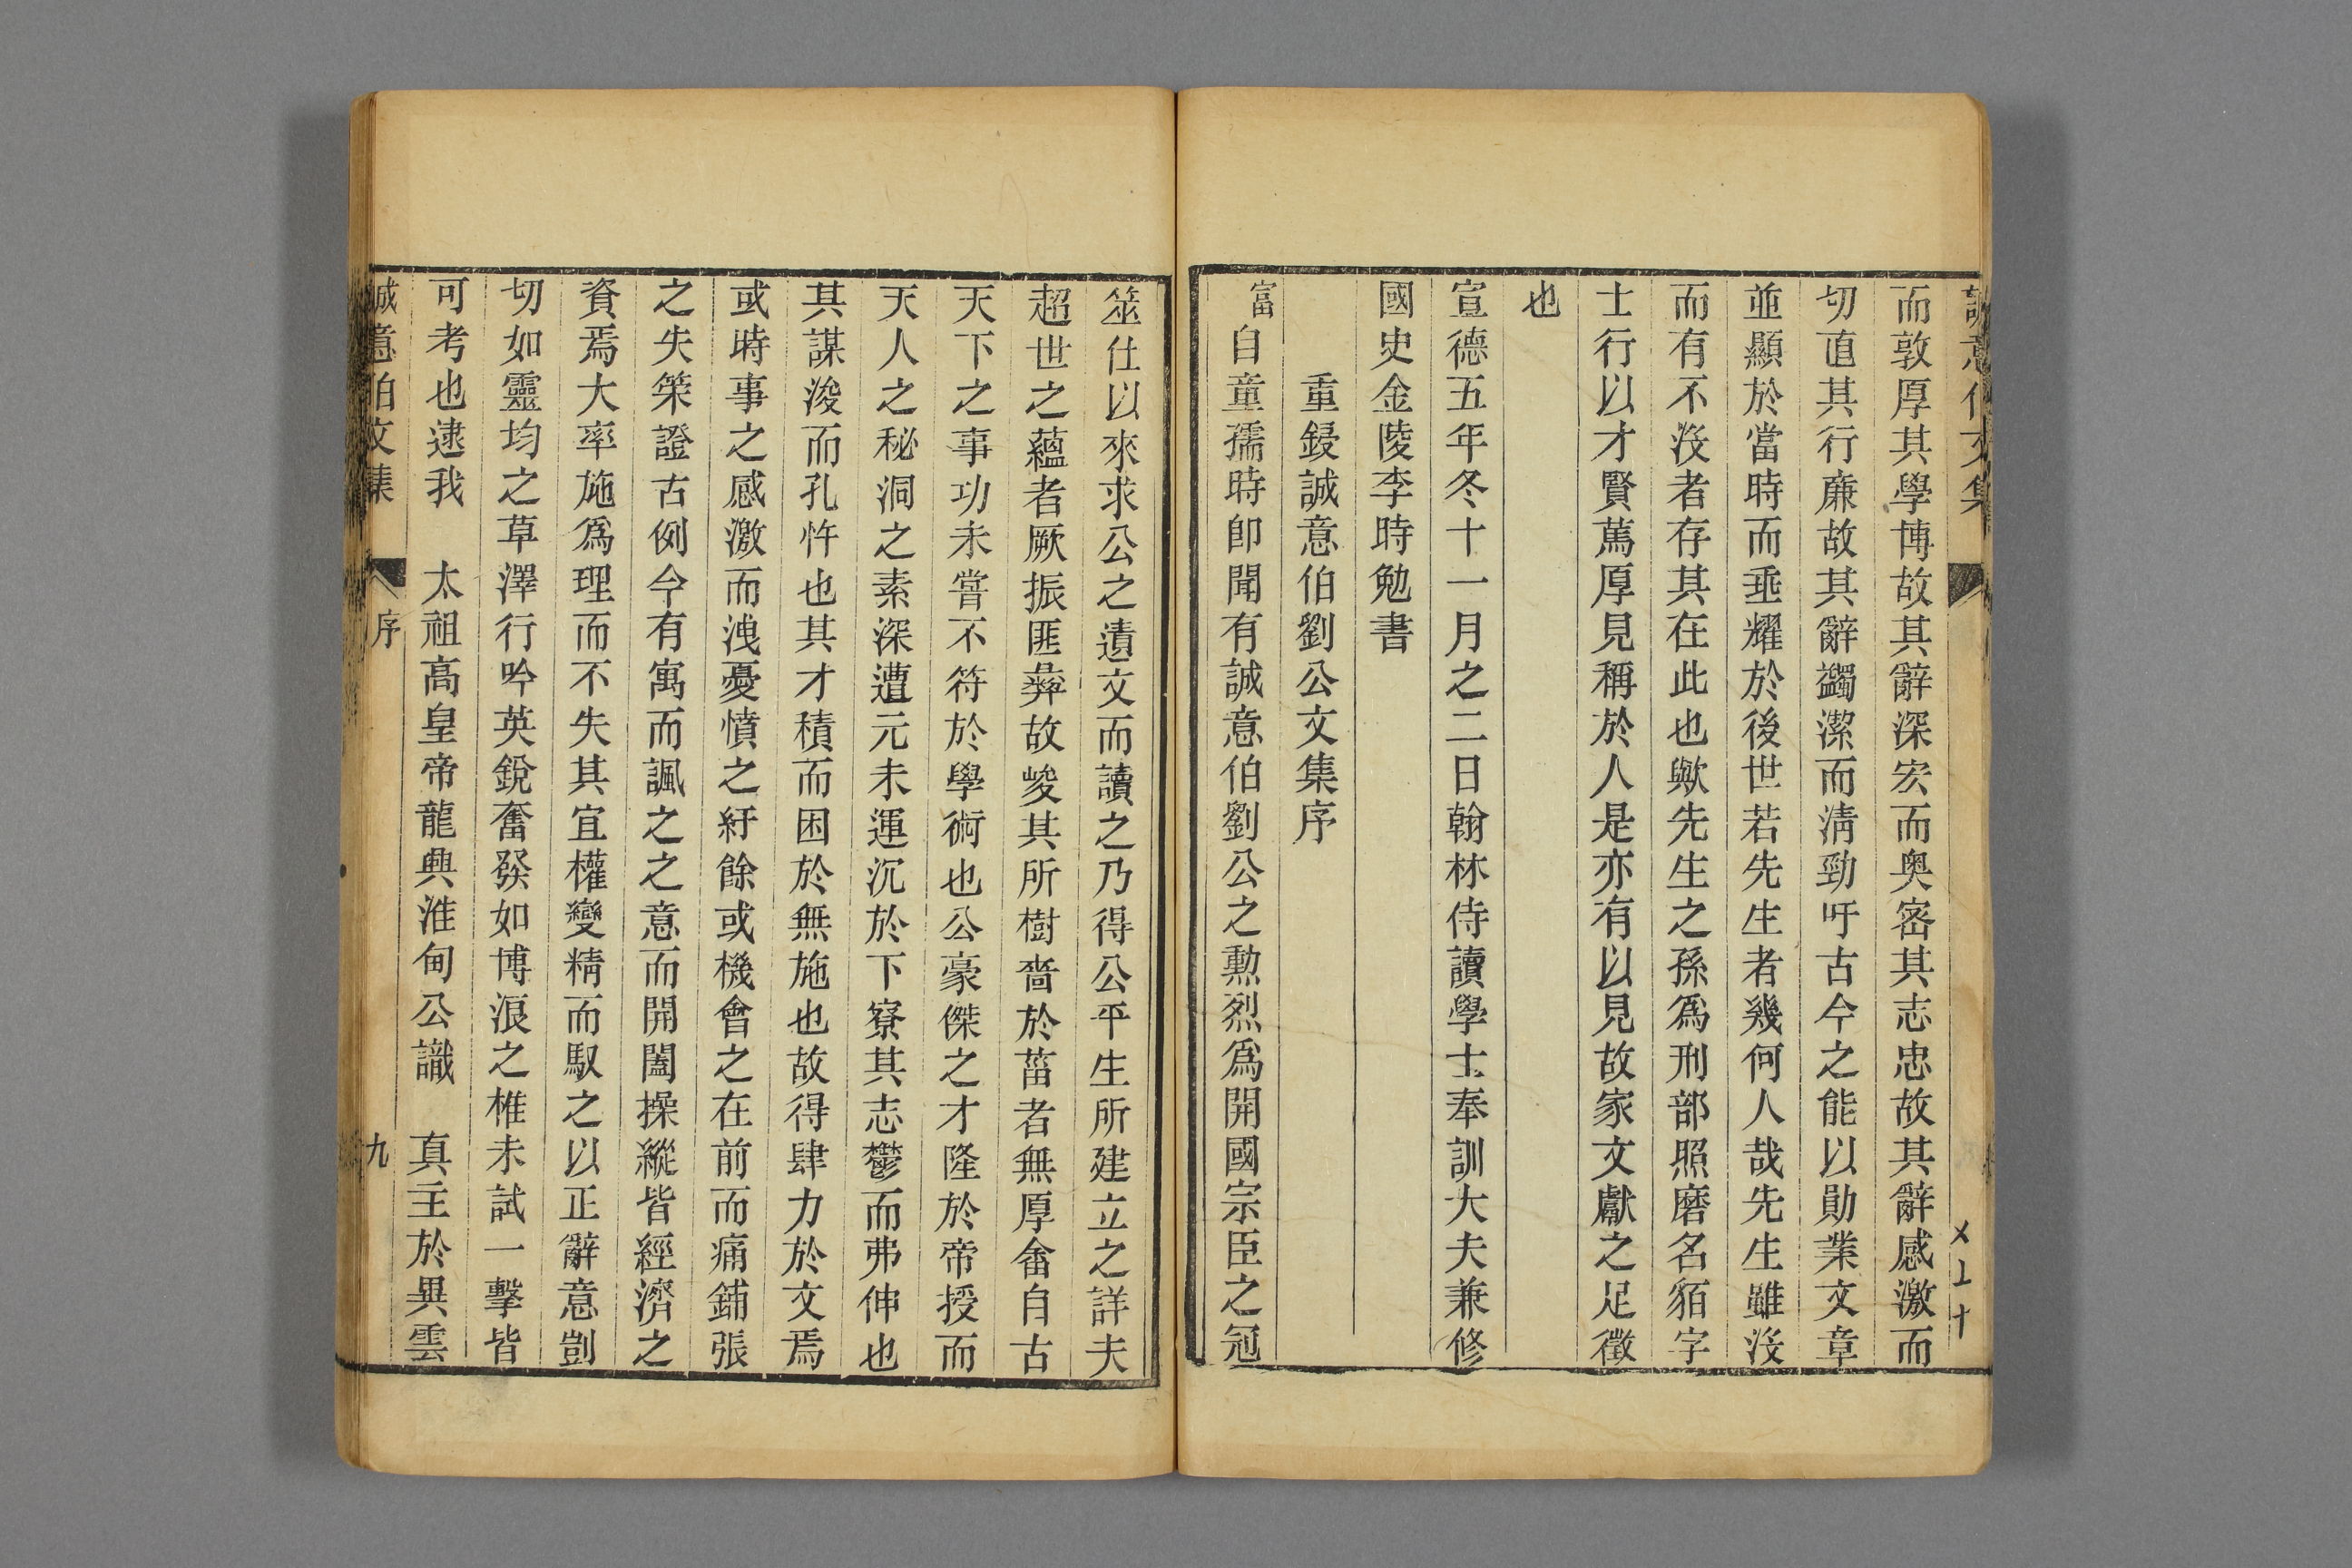 誠意伯文集
而敦厚其學博故其辭深宏而奥密其志忠故其辭感激而
切直其行廉故其辭蠲潔而淸勁吁古今之能以勛業文章
並顯於當時而垂耀於後世若先生者幾何人哉先生雖沒
而有不沒者存其在此也歟先生之孫爲刑部照磨名貊字
士行以才賢篤厚見稱於人是亦有以見故家文獻之足徵
也
宣德五年冬十一月之二日翰林侍讀學士奉訓大夫兼修
國史金陵李時勉書
重鋟誠意伯劉公文集序
富自童孺時卽聞有誠意伯劉公之勳烈爲開國宗臣之冠
筮仕以來求公之遺文而讀之乃得公平生所建立之詳夫
超世之蘊者厥振匪彞故峻其所樹嗇於菑者無厚畬自古
天下之事功未嘗不符於學術也公豪傑之才隆於帝授而
天人之秘洞之素深遭元末運沉於下寮其志鬱而弗伸也
其謀浚而孔忤也其才積而困於無施也故得肆力於文焉
或時事之感激而洩憂憤之紆餘或機會之在前而痛鋪張
之失策證古例今有寓而諷之之意而開闔操縱皆經濟之
資焉大率施爲理而不失其宜權變精而馭之以正辭意剴
切如靈均之草澤行吟英銳奮發如博浪之椎未試一擊皆
可考也逮我　太祖高皇帝龍興淮甸公識　真主於異雲
誠意伯文集　序　九